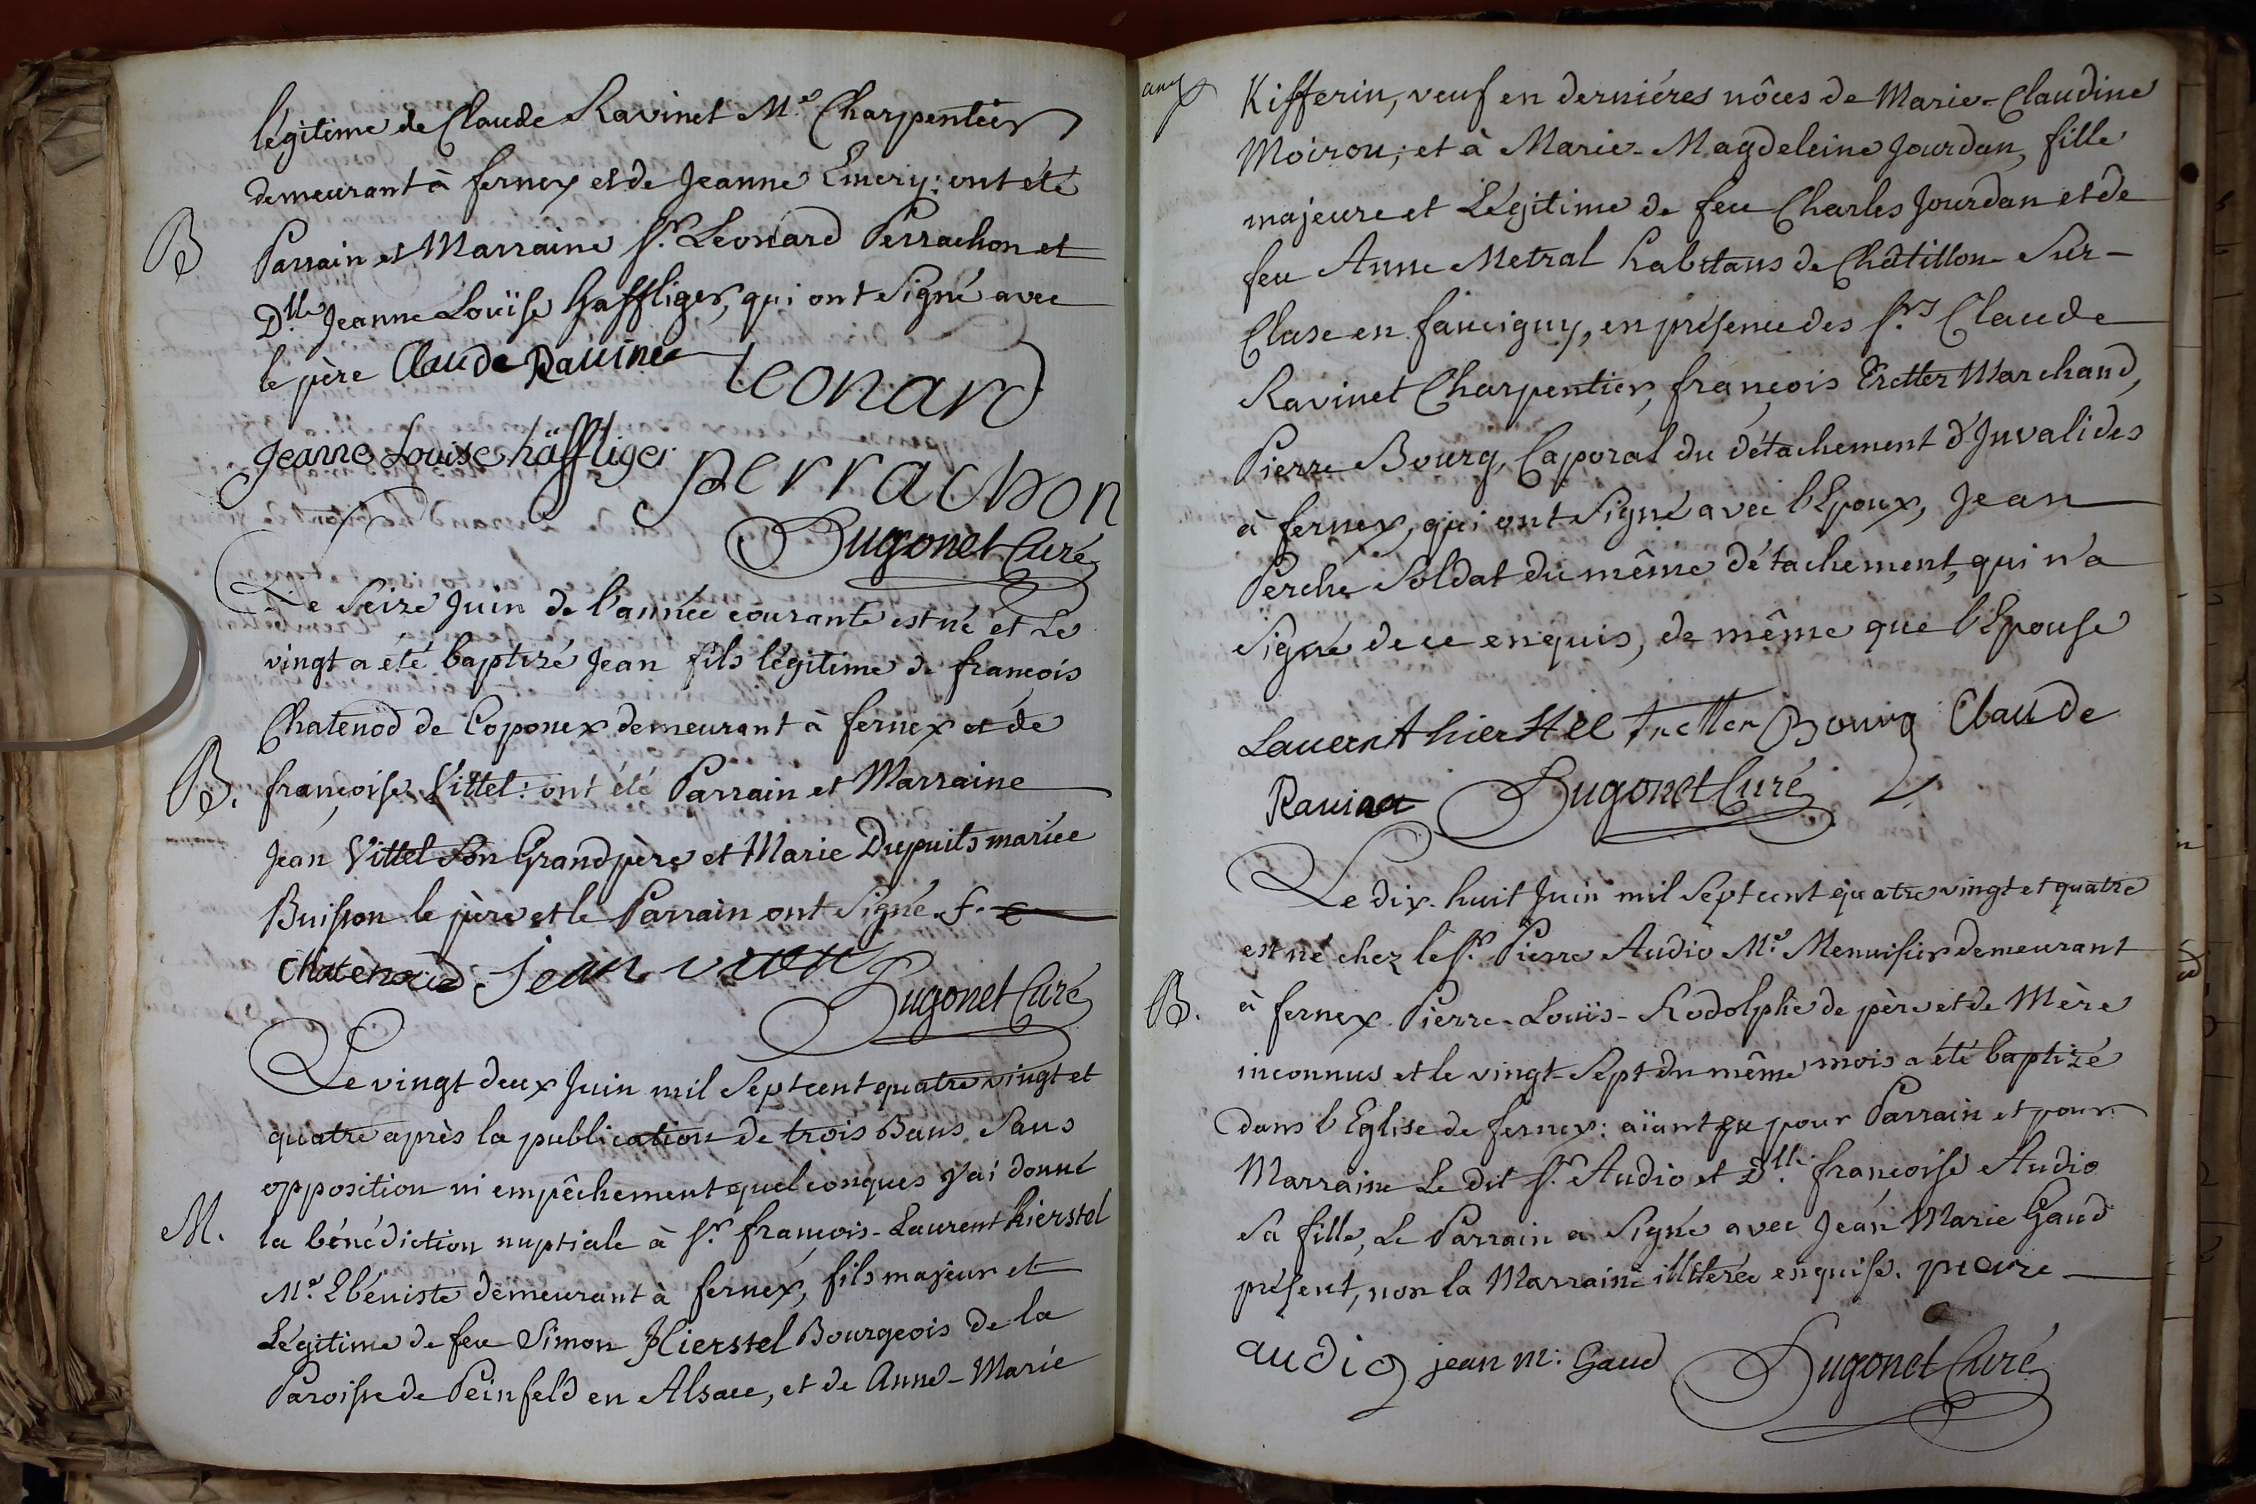 légitime de Claude Ravinet M.e Charpentier
demeurant à fernex et de Jeanne Emery : ont été
B
Parrain et Marraine S.r Leonard Perrachon et
D.lle Jeanne Loüise Haffliger, qui ont signé avec
le père Claude Ravinet
Leonard
Jeanne Louise häffliger perrachon
Hugonet Curé
Le seize Juin de l'année courante est né et Le
vingt a été baptizé Jean fils légitime de françois
Chatenod de Coponex demeurant à fernex et de
B.
françoise Vittet : ont été Parrain et Marraine
Jean Vittet son Grandpère et Marie Dupuits mariée
Buisson le père et le Parrain ont signé. f.
Chatenoud Jean vittet
Hugonet Curé
Le vingt deux Juin mil sept cent quatre vingt et
quatre après la publication de trois Bans sans
opposition ni empêchement quelconques j'ai donné
M.
la bénédiction nuptiale à S.r françois-Laurent hierstel
M.e Ebéniste demeurant à fernex, fils majeur et
Légitime de feu Simon Hierstel Bourgeois de la
Paroisse de Peinfeld en Alsace, et de Anne-Marie
Kifferin, veuf en derniéres nôces de Marie-Claudine
Moirou ; et à Marie-Magdeleine Jourdan, fille
majeure et Légitime de feu Charles Jourdan et de
feu Anne Metral habitans de Châtillon sur-
Cluse en faucigny, en présence des S.rs Claude
Ravinet Charpentier, françois Tretter Marchand,
Pierre Bourg, Caporal du détachement d'Invalides
à fernex, qui ont signé avec l'Epoux, Jean
Perche soldat du même détachement, qui n'a
signé de ce enquis, de même que l'Epouse
Lauern thierstel Tretter Bourg Claude
Ravinet Hugonet Curé
Le dix-huit Juin mil sept cent quatre vingt et quatre
est né chez le S.r Pierre Audio M.e Menuisier demeurant
B.
à fernex Pierre-Louïs-Rodolphe de père et de Mère
inconnus et le vingt-sept du même mois a été baptizé
dans l'Eglise de fernex : aïant eu pour Parrain et pour
Marraine Le dit S.r Audio et D.lle françoise Audio
sa fille, Le Parrain a signé avec Jean Marie Gaud
présent, non la Marraine illiterée enquise. pieare
audio jean m: Gaud Hugonet Curé